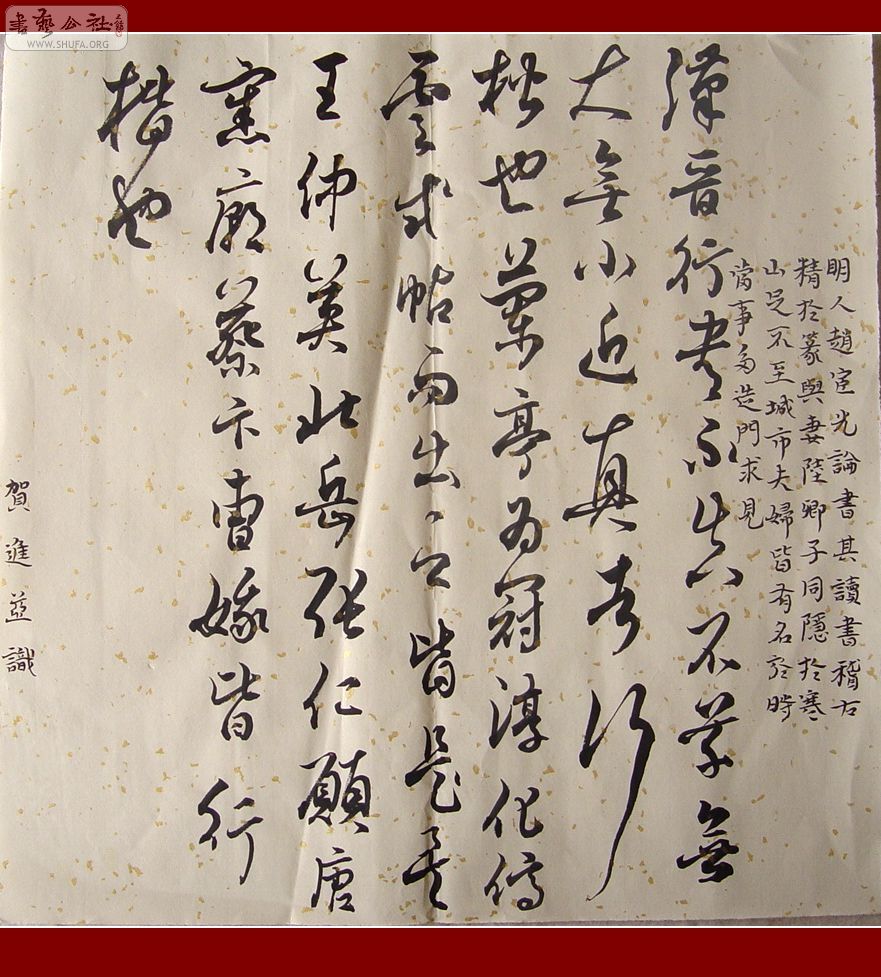 書藝公社
WWW.SHUFA.ORG
明人趙宧光論書其讀書稽古
精於篆與妻陸卿子同隱於寒
山足不至城市夫婦皆有名於時
當事多造門求見
漢晉行書不真不草無
大無小近真者行
楷也蘭亭為冠淳化傳
帖而出皆是
王仲英北岳張仁願唐
窯廟蔡卞曹娥皆行
楷也
賀進並識